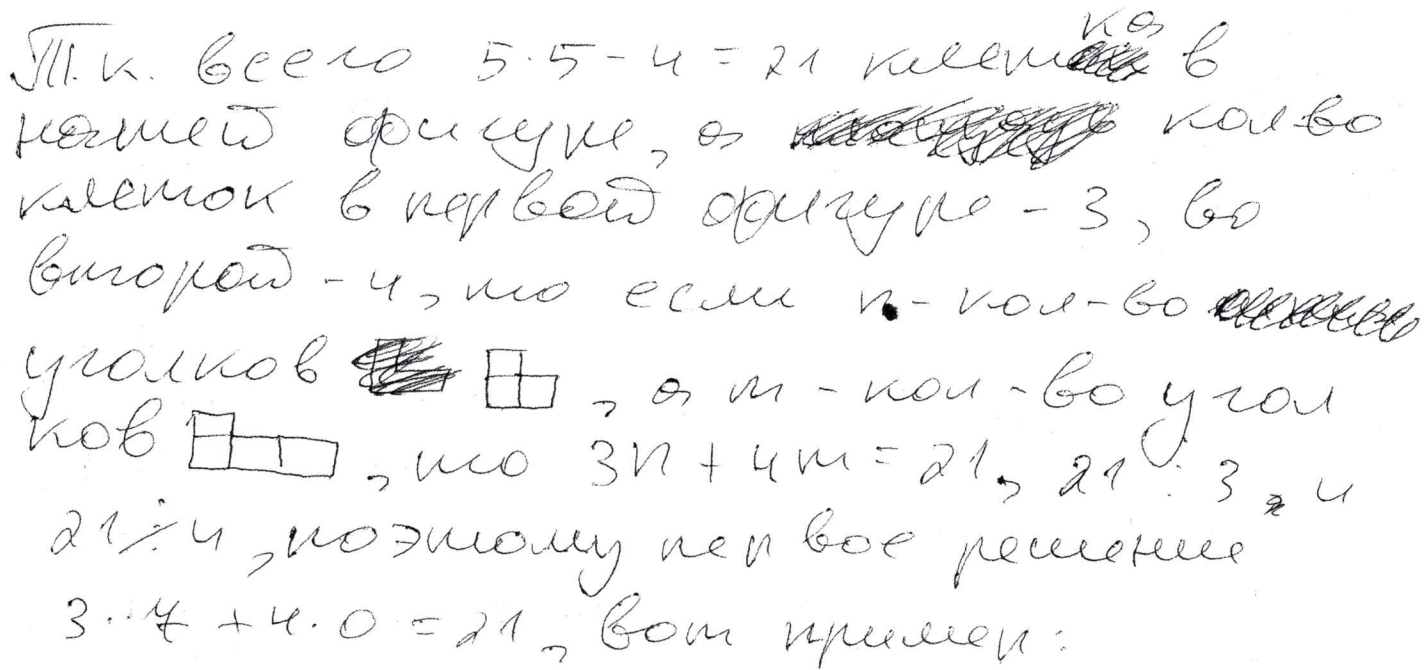 Т.к. всего 5·5-4=21 клетка в
нашей фигуре, а кол-во
клеток в первой фигуре - 3, во
второй - 4, то если n - кол-во
уголков , а m - кол-во угол
ков , то 3n + 4m = 21, 21 ⋮ 3, и
21 ⋮̸ 4, поэтому первое решение
3·7 + 4·0 = 21, вот пример: